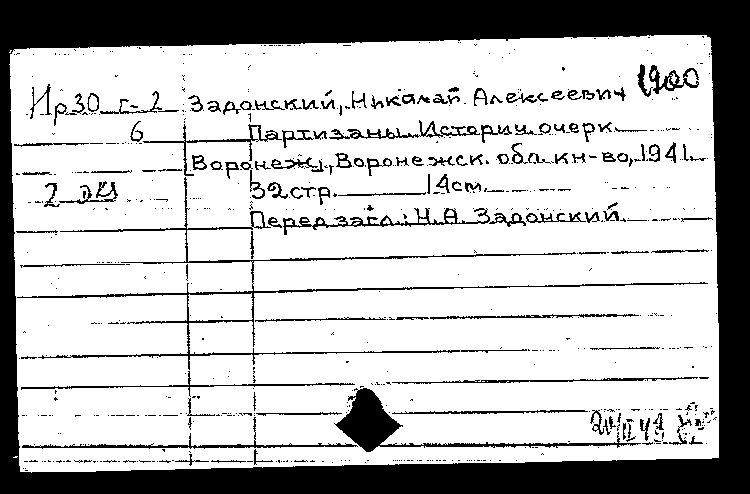 Ир30 г-2 Задонский, Николай Алексеевич 1900
6 Партизаны. Историч. очерк.
Воронеж, Воронежск. обл. кн-во, 1941.
2 экз 32 стр. 14 см.
Перед загл.: Н.А. Задонский.